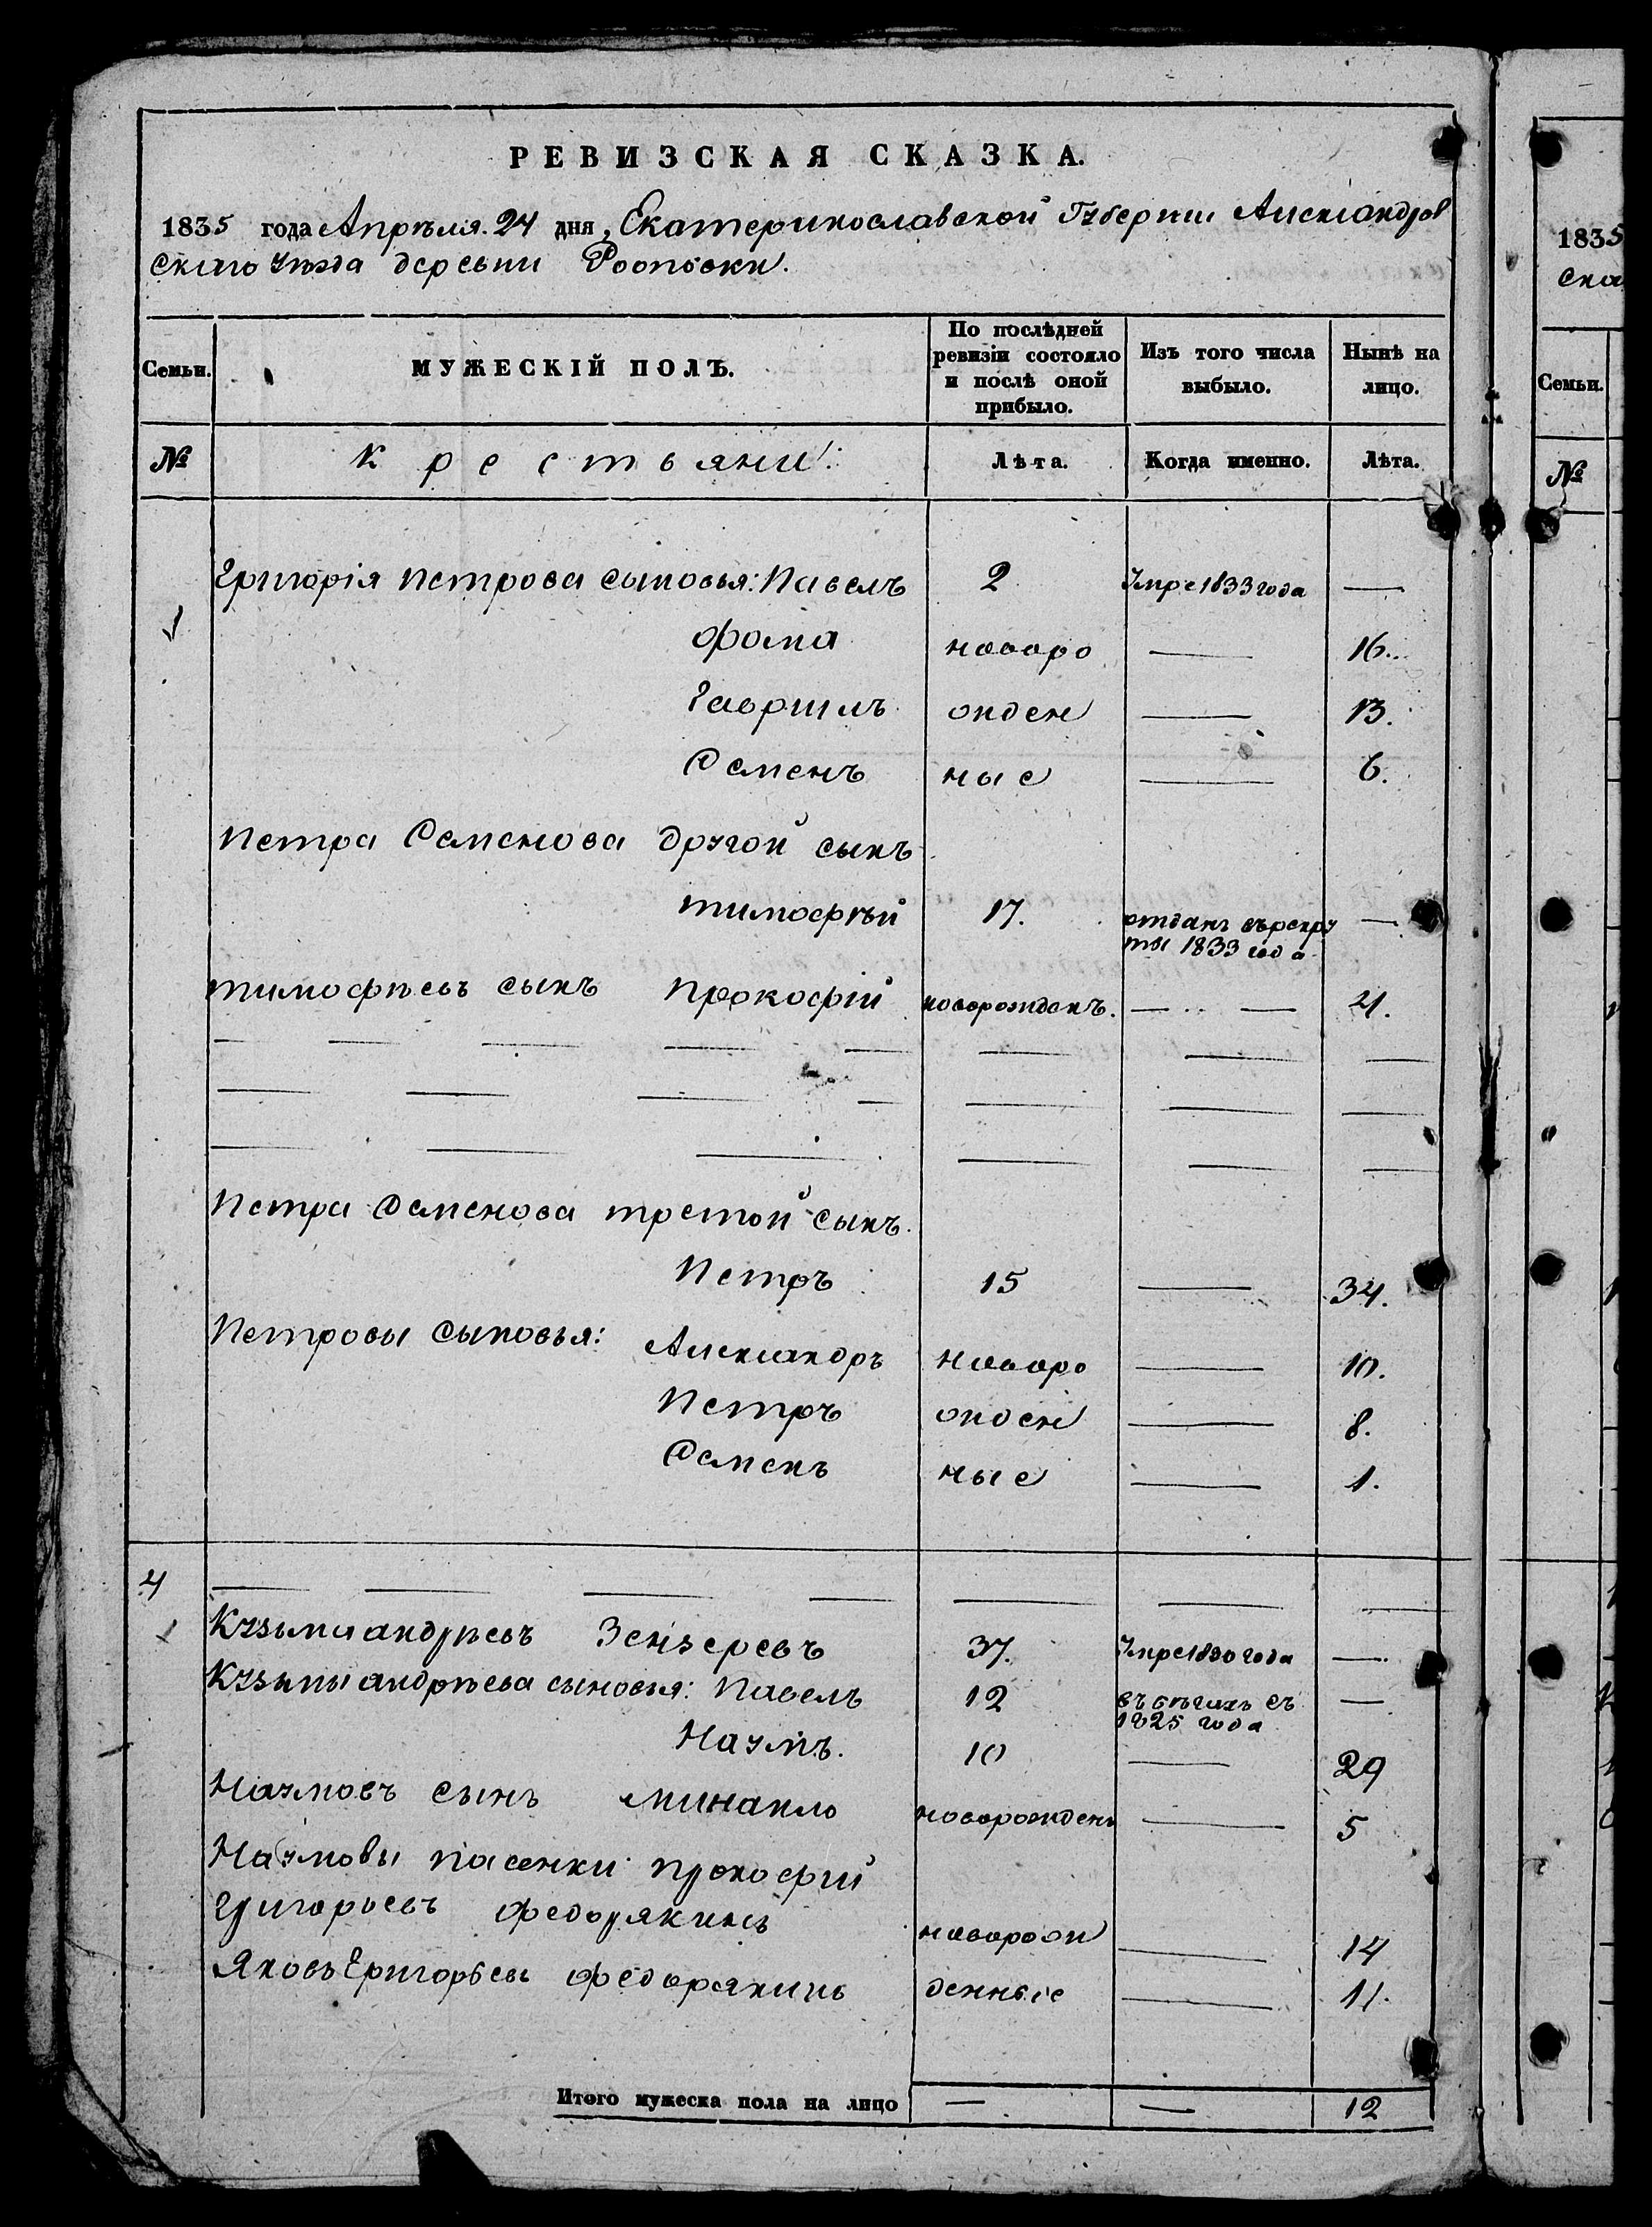 РЕВИЗСКАЯ СКАЗКА.
1835 года Апрѣля 24 дня, Екатеринославской Губерніи Александров
скаго уѣзда деревни
Семьи. МУЖЕСКІЙ ПОЛЪ. По послѣдней ревизіи состояло и послѣ оной прибыло. Изъ того числа выбыло. Нынѣ на лицо.
№ Крестьяни: Лѣта. Когда именно. Лѣта.
Григорія Петрова сыновья: Павелъ 2 Умре 1833 года —
Фома новоро — 16.
Гаврилъ жден — 13.
Семенъ ные — 6.
Петра Семенова другой сынъ
Тимофѣй 17. отданъ въ рекру —
ты 1833 года
Тимофѣевъ сынъ Прокофій новорожденъ. — — 21.
Петра Семенова третой сынъ.
Петръ 15 — 34.
Петровы сыновья: Александръ новоро — 10.
Петръ жден — 8.
Семенъ ные — 1.
4
Кузьма Андрѣевъ 37. Умре 1830 года —
Кузьмы Андрѣева сыновья: Павелъ 12 въ бѣгахъ съ —
1825 года
Наумъ. 10 — 29
Наумовъ сынъ новорожденъ — 5
Наумовы пасенки Прокофій
Григорьевъ Федорякинъ новорож — 14
Яковъ Григорьевъ Федорякинъ денные — 11.
Итого мужеска пола на лицо — — 12
1835
ска
Семьи.
№